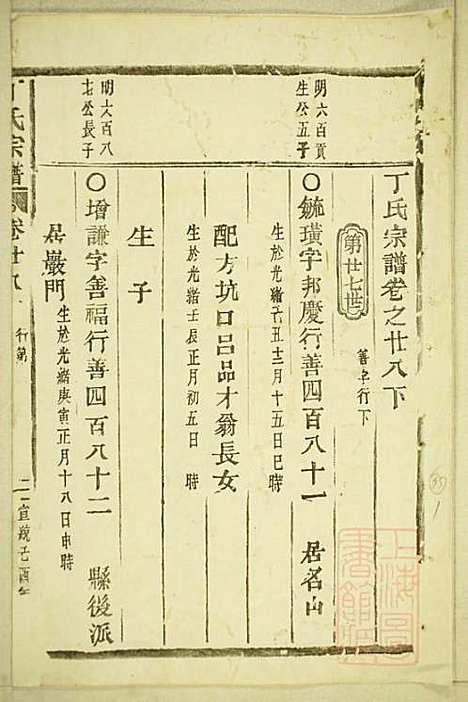 丁氏宗譜卷之廿八下
善字行下
第廿七世
明六百貢
生公五子
〇毓璜字邦慶行善四百八十一 居名山
生於光緒 丑十二月十五日巳時
配方坑口呂品才翁長女
生於光緒壬辰正月初五日 時
生子
明六百八
七公長子
〇增謙字善福行善四百八十二 縣後派
居巖門
生於光緒庚寅正月十八日申時
丁氏宗譜
卷廿八
行第
宣統己酉年
上海圖書館藏